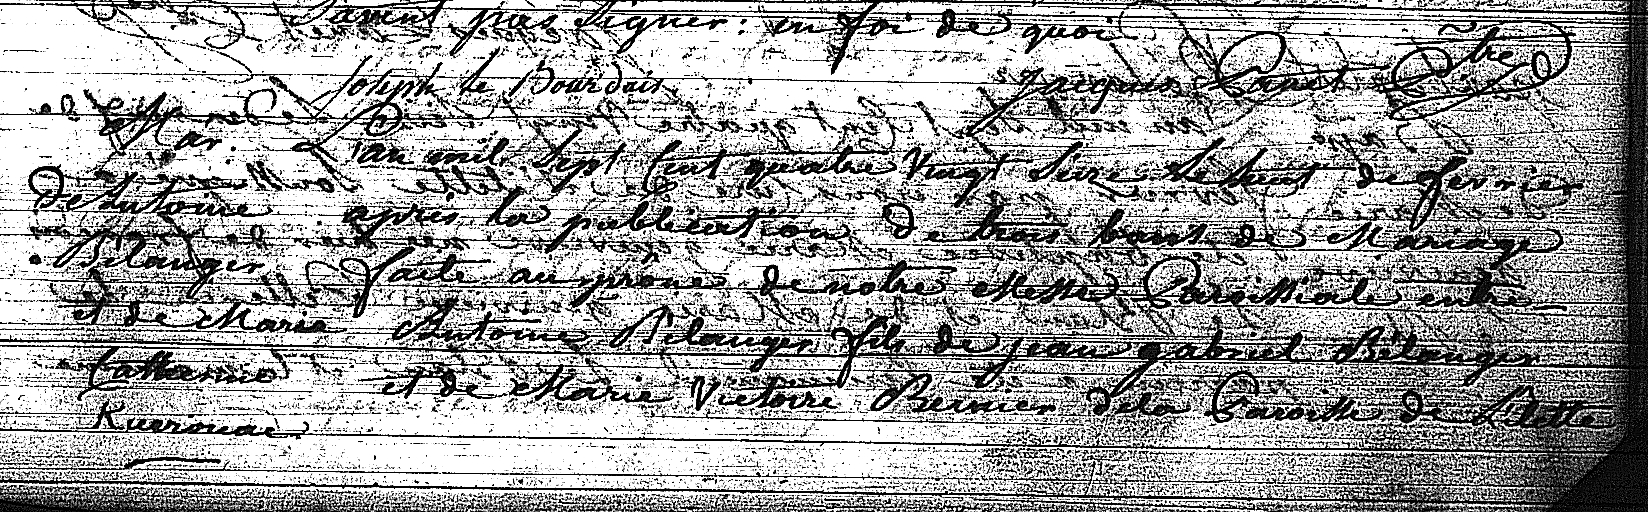 Savent pas Signer: en foi de quoi
Joseph le Bourdais Jacques Panet Ptre
Le 8e fevrier
Mar.
de Antoine
Bélanger
et de Marie
Catherine
Kuerouac
L'an mil Sept Cent quatre Vingt Seize Le huit de fevrier
après la publication de trois bans de Mariage
faite au prône de notre Messe Paroissiale entre
Antoine Bélanger fils de jean gabriel Bélanger
et de Marie Victoire Bernier dela Paroisse de L'ilette